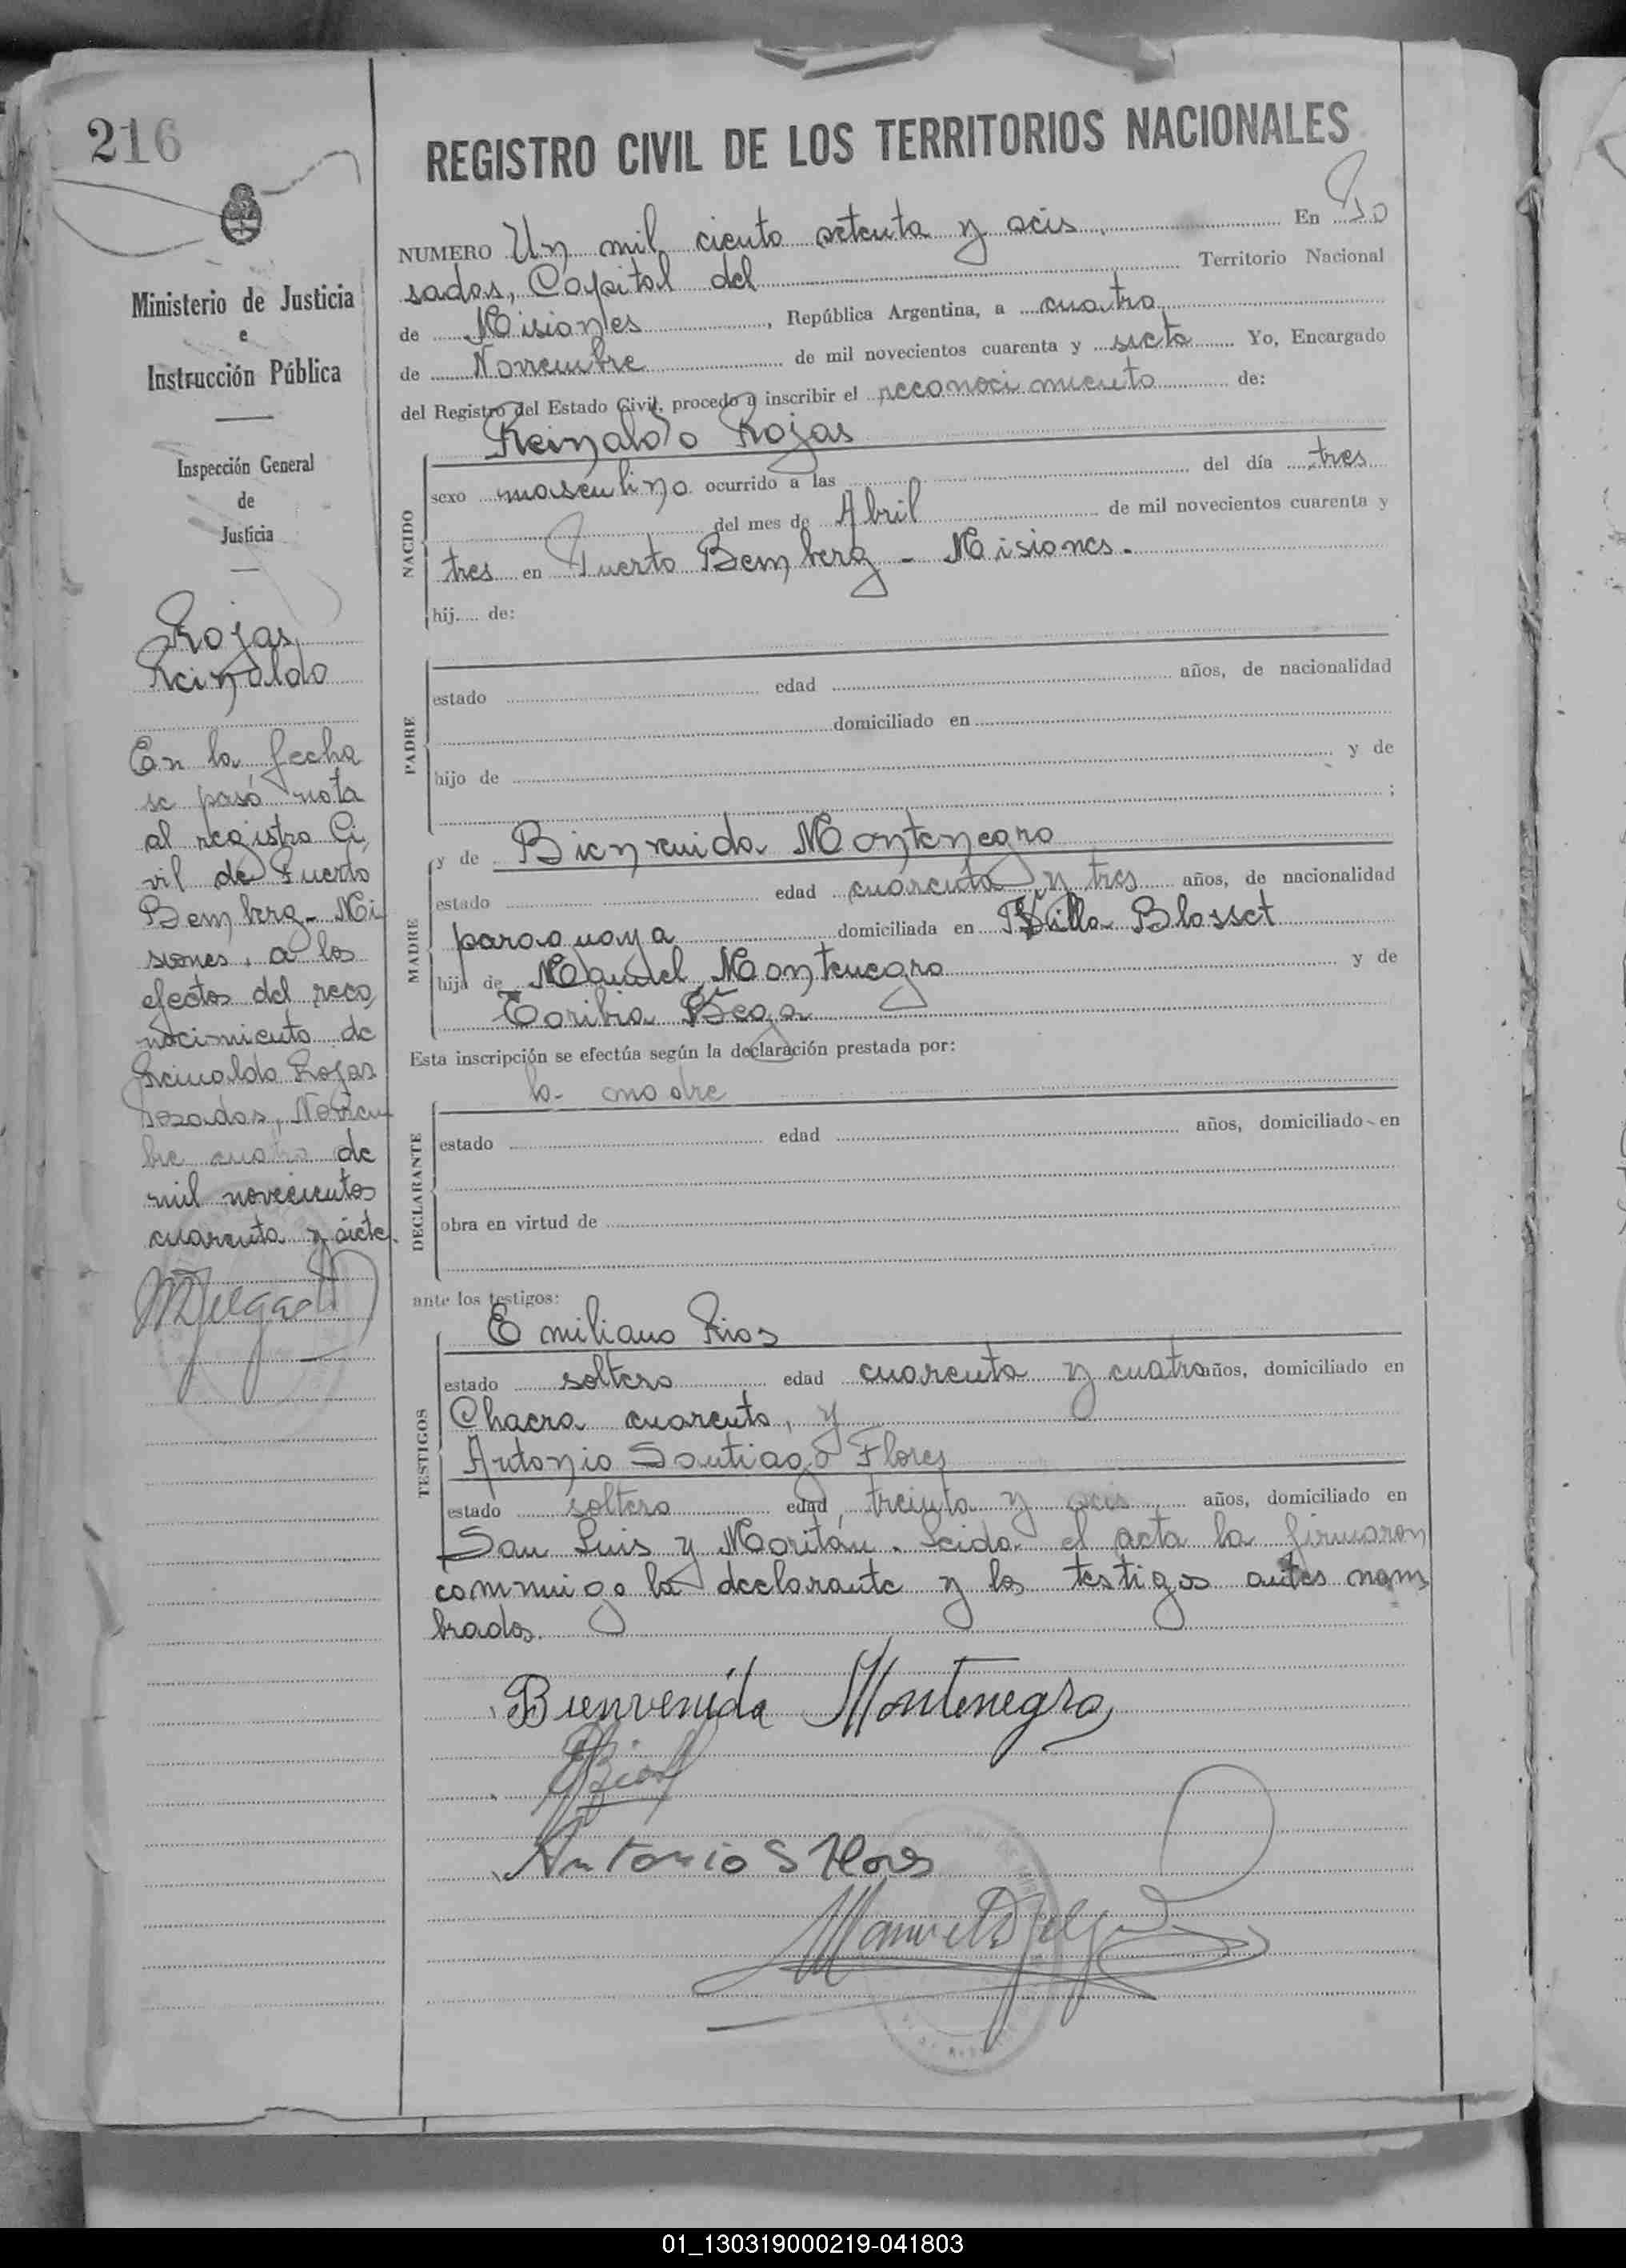 216
Ministerio de Justicia
e
Instrucción Pública
Inspección General
de
Justicia
Rojas,
Reinaldo
En la fecha
se pasó nota
al registro Ci
vil de Puerto
Bemberg - Mi
siones, a los
efectos del reco
nocimiento de
Reinaldo Rojas
Posadas, Noviem
bre cuatro de
mil novecientos
cuarenta y siete.
REGISTRO CIVIL DE LOS TERRITORIOS NACIONALES
NUMERO Un mil ciento setenta y seis, En Po
sadas, Capital del Territorio Nacional
de Misiones, República Argentina, a cuatro
de Noviembre de mil novecientos cuarenta y siete Yo, Encargado
del Registro del Estado Civil, procedo a inscribir el reconocimiento de:
Reinaldo Rojas
NACIDO
sexo masculino ocurrido a las del día tres
del mes de Abril de mil novecientos cuarenta y
tres en Puerto Bemberg - Misiones.
hij de:
PADRE
estado edad años, de nacionalidad
domiciliado en
hijo de y de
;
y de Bienvenida Montenegro
MADRE
estado edad cuarenta y tres años, de nacionalidad
paraguaya domiciliada en Villa Blosset
hija de Manuel Montenegro y de
Toribia Bega
Esta inscripción se efectúa según la declaración prestada por:
la madre
DECLARANTE
estado edad años, domiciliado en
obra en virtud de
ante los testigos:
Emiliano Rios
TESTIGOS
estado soltero edad cuarenta y cuatro años, domiciliado en
Chacra cuarenta, y
Antonio Santiago Flores
estado soltero edad treinta y seis años, domiciliado en
San Luis y Moritán. Leida el acta la firmaron
conmigo la declarante y los testigos antes nom
brados.
Bienvenida Montenegro
Antonio S Flores
01_130319000219-041803